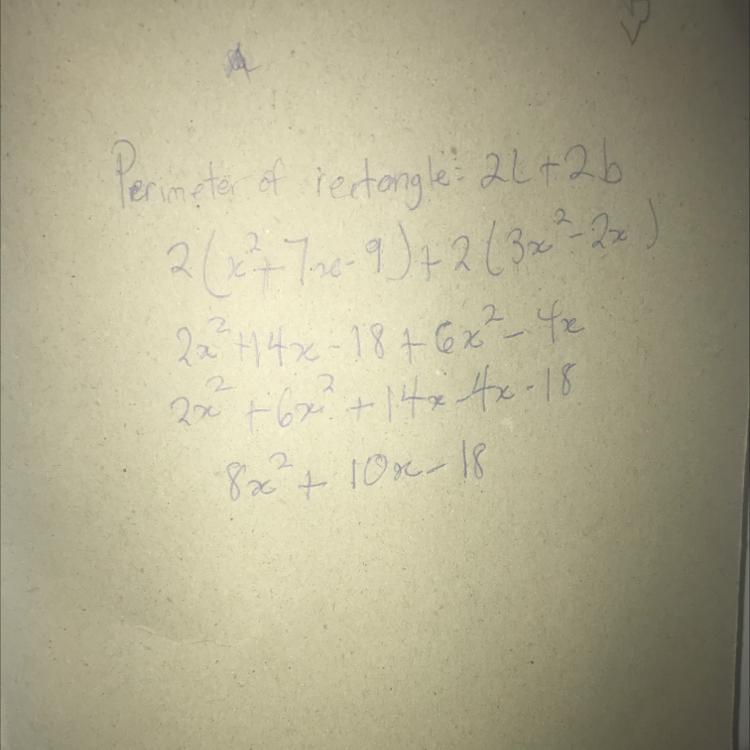 Perimeter of rectangle: 2L+2b
2(x²+7x-9)+2(3x²-2x)
2x²+14x-18+6x²-4x
2x²+6x²+14x-4x-18
8x²+10x-18